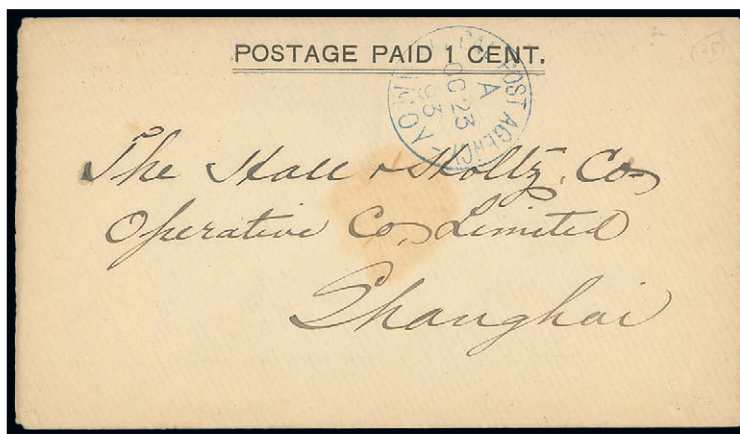 POSTAGE PAID 1 CENT.
LOCAL POST AGENCY
A
OC 23
93
AMOY
The Hall & Holtz, Co-
Operative Co, Limited
Shanghai